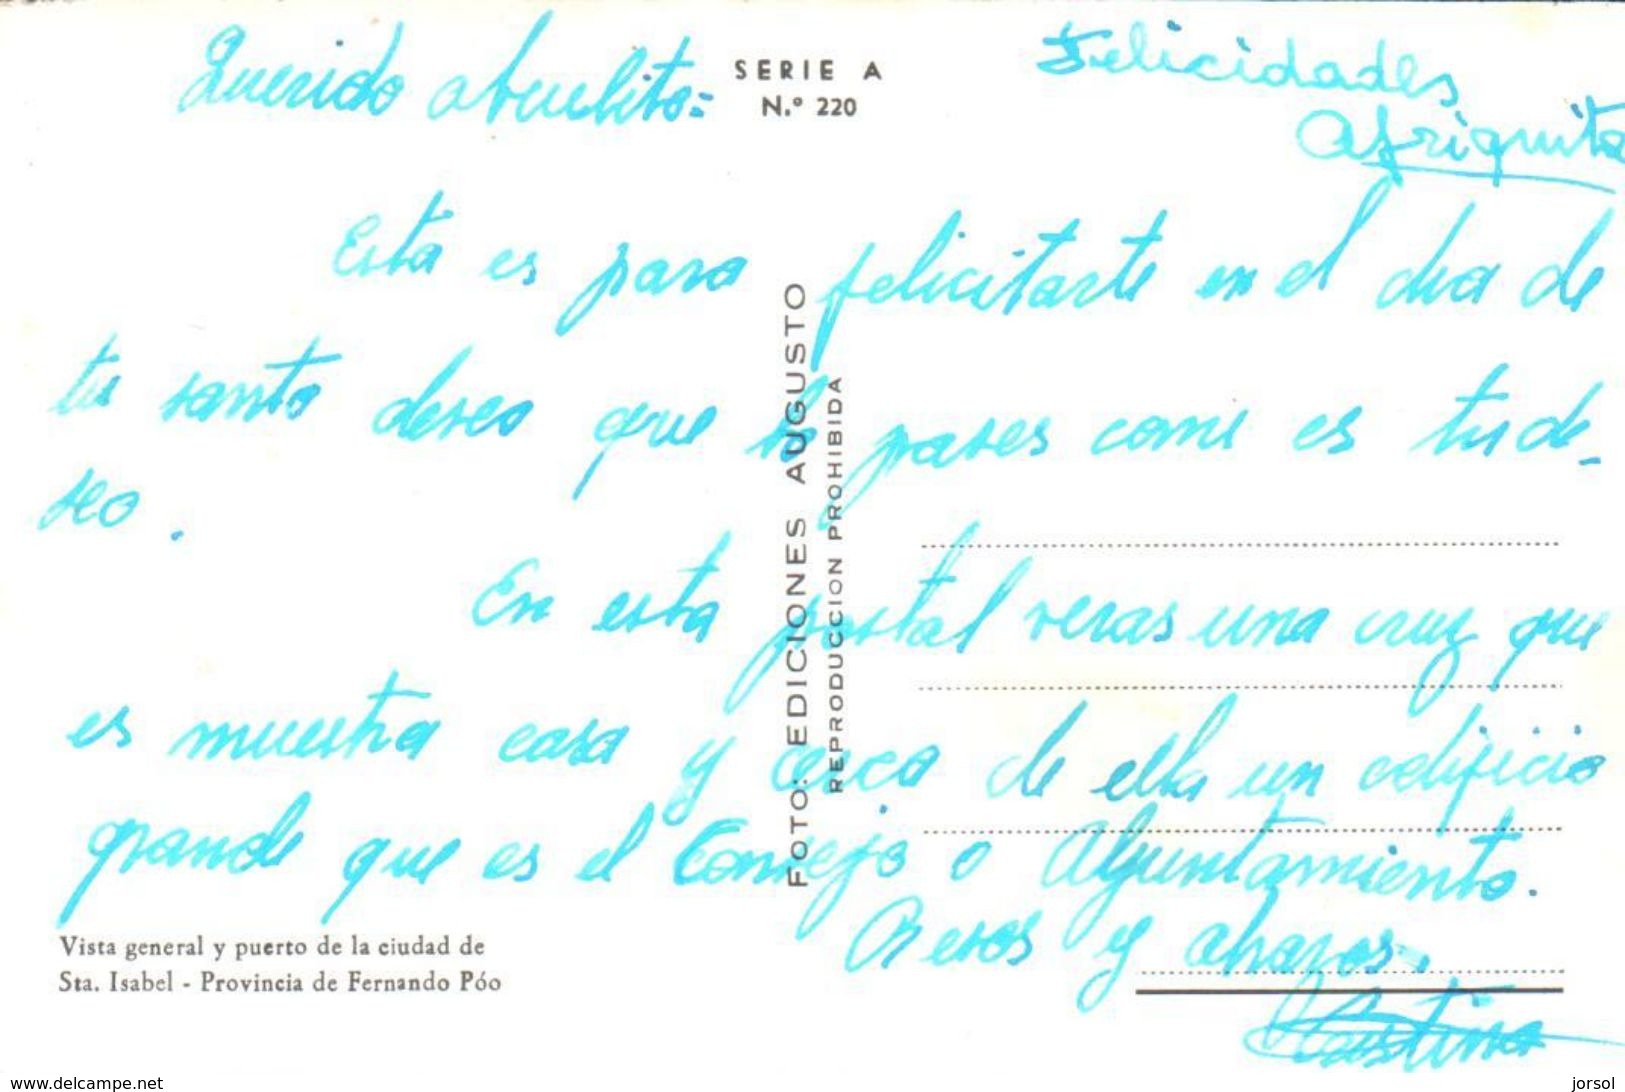 Querido abuelito=
SERIE A
N.º 220
Felicidades
Afriquita
Esta es para felicitarte en el dia de
tu santo deseo que lo pases como es tu de-
seo.
En esta postal veras una cruz que
es nuestra casa y cerca de ella un edificio
grande que es el Consejo o Ayuntamiento.
Besos y abrazos.
FOTO: EDICIONES AUGUSTO
REPRODUCCION PROHIBIDA
Vista general y puerto de la ciudad de
Sta. Isabel - Provincia de Fernando Póo
www.delcampe.net
jorsol